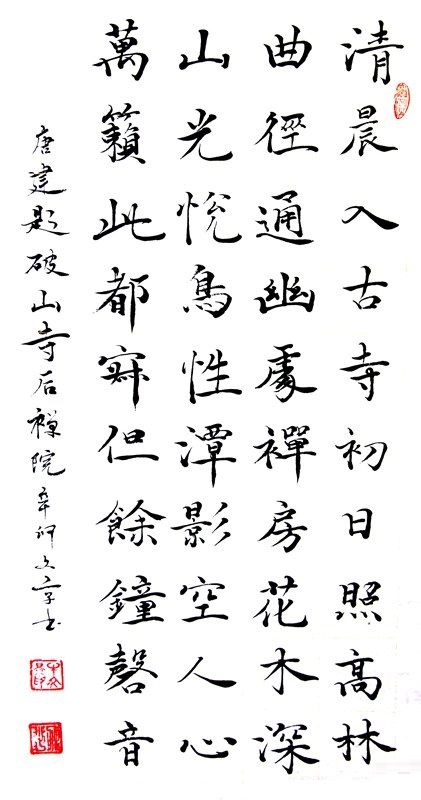 清晨入古寺初日照高林
曲徑通幽處禪房花木深
山光悅鳥性潭影空人心
萬籟此都寂但餘鐘磬音
唐建题破山寺后禪院辛卯文书